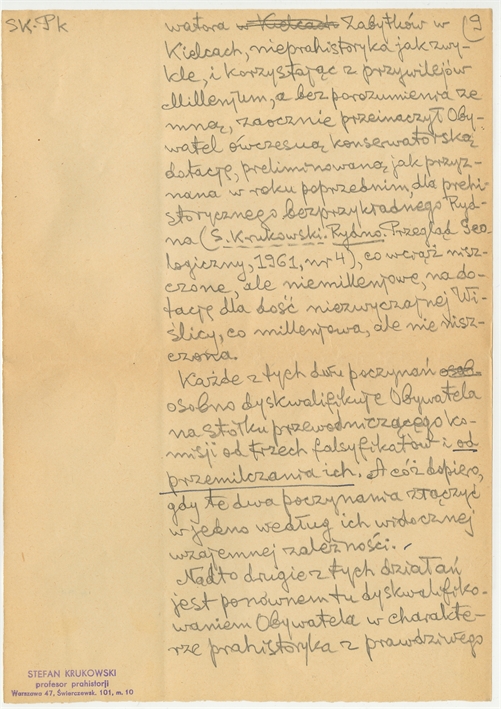 SK. Pk
(9
watora w Kielcach Zabytków w
Kielcach, nieprahistoryka jak zwy-
kle, i korzystając z przywilejów
Millenjum, a bez porozumienia ze
mną, zaocznie przeinaczył Oby-
watel ówczesną konserwatorską
dotację, preliminowaną, jak przyz-
nana w roku poprzednim, dla prehi-
storycznego bezprzykładnego Ryd-
na (S. Krukowski. Rydno. Przegląd Geo-
logiczny, 1961, nr 4), co wciąż nisz-
czone, ale niemillenjowe, na do-
tację dla dość niezwyczajnej Wi-
ślicy, co millenjowa, ale nie nisz-
czona.
Każde z tych dwu poczynań osob.
osobno dyskwalifikuje Obywatela
na stołku przewodniczącego ko-
misji od trzech falsyfikatów i od
przemilczania ich. A cóż dopiero,
gdy te dwa poczynania złączyć
w jedno według ich widocznej
wzajemnej zależności.
Nadto drugie z tych działań
jest ponownem tu dyskwalifiko-
waniem Obywatela w charakte-
rze prahistoryka z prawdziwego
STEFAN KRUKOWSKI
profesor prahistorji
Warszawa 47, Świerczewsk. 101, m. 10